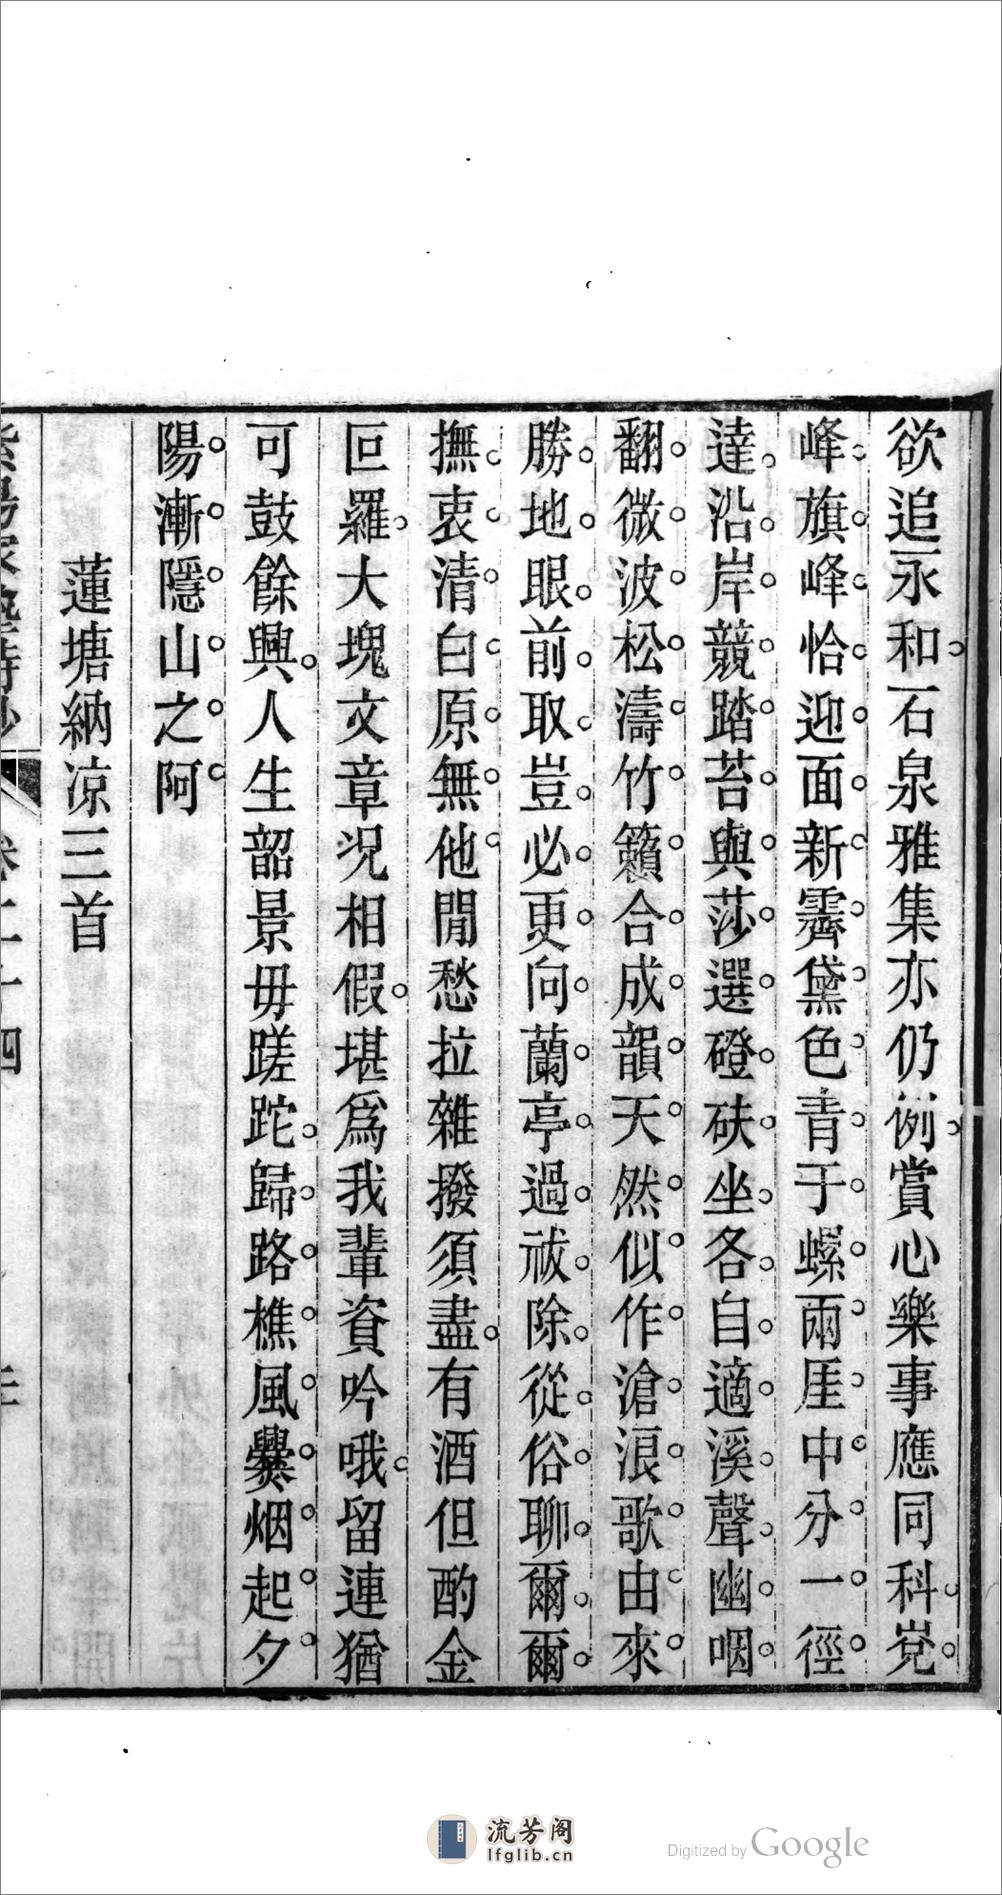 欲追永和石泉雅集亦仍例賞心樂事應同科覓
峰旗峰恰迎面新霽黛色青于螺兩厓中分一徑
達沿岸競踏苔與莎選磴砆坐各自適溪聲幽咽
翻微波松濤竹籟合成韻天然似作滄浪歌由來
勝地眼前取豈必更向蘭亭過祓除從俗聊爾爾
撫衷清白原無他閒愁拉雜撥須盡有酒但酌金
叵羅大塊文章況相假堪爲我輩資吟哦留連猶
可鼓餘興人生韶景毋蹉跎歸路樵風爨烟起夕
陽漸隱山之阿
蓮塘納凉三首
卷二十四
流芳阁
lfglib.cn
Digitized by Google